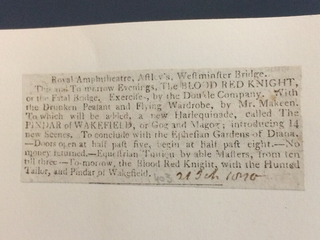 Royal Amphitheatre, Astley's, Westminster Bridge.
This and To-morrow Evenings, The BLOOD RED KNIGHT,
or the Fatal Bridge, Exercises, by the Double Company, With
the Drunken Peasant and Flying Wardrobe, by Mr. Makeen.
To which will be added, a new Harlequinade, called The
PINDAR of WAKEFIELD, or Gog and Magog; introducing 14
new Scenes. To conclude with the Ephesian Gardens of Diana.
—Doors open at half past five, begin at half past eight.—No
money returned.—Equestrian Tuition by able Masters, from ten
till three—To-morrow, the Blood Red Knight, with the Hunted
Tailor, and Pindar of Wakefield.
1810